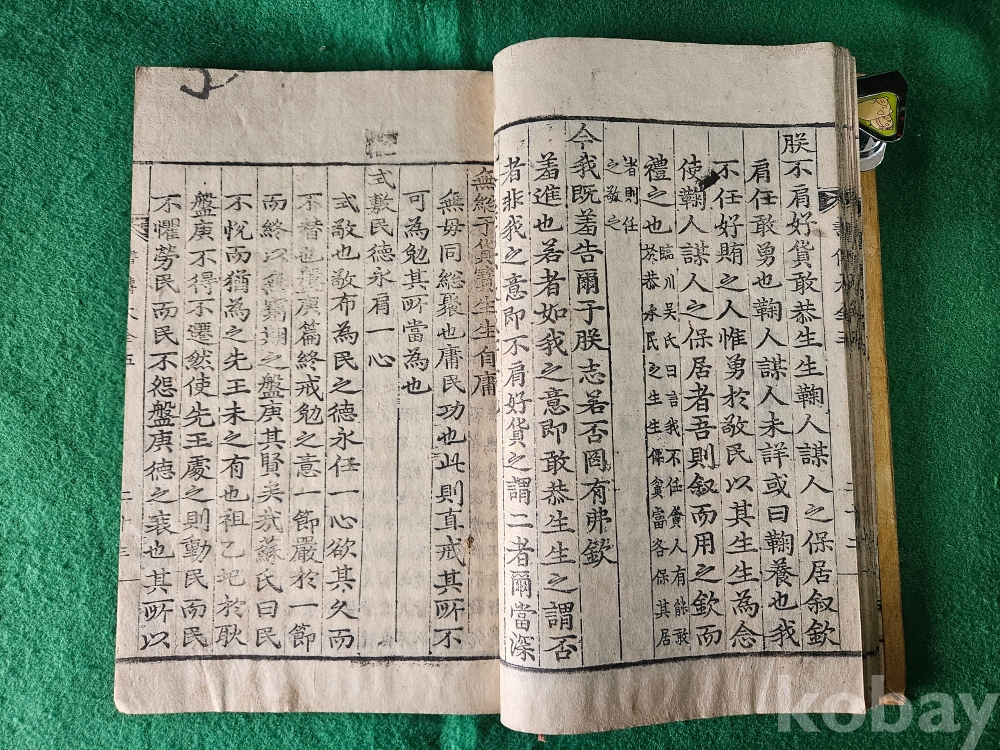 朕不肩好貨敢恭生生鞠人謀人之保居叙欽
肩任敢勇也鞠人謀人未詳或曰鞠養也我
不任好賄之人惟勇於敬民以其生生為念
使鞠人謀人之保居者吾則叙而用之欽而
禮之也
臨川吳氏曰言我不任貪人有能敢
於恭承民之生生俾貧富各保其居
者則任
之敬之
今我既羞告爾于朕志若否罔有弗欽
羞進也若者如我之意即敢恭生生之謂否
者非我之意即不肩好貨之謂二者爾當深
無總于貨寶生生自庸
無毋同總聚也庸民功也此則直戒其所不
可為勉其所當為也
式敷民德永肩一心
式敬也敬布為民之德永任一心欲其久而
不替也盤庚篇終戒勉之意一節嚴於一節
而終以無窮期之盤庚其賢矣哉蘇氏曰民
不悅而猶為之先王未之有也祖乙圯於耿
盤庚不得不遷然使先王處之則動民而民
不懼勞民而民不怨盤庚德之衰也其所以
二十三
kobay